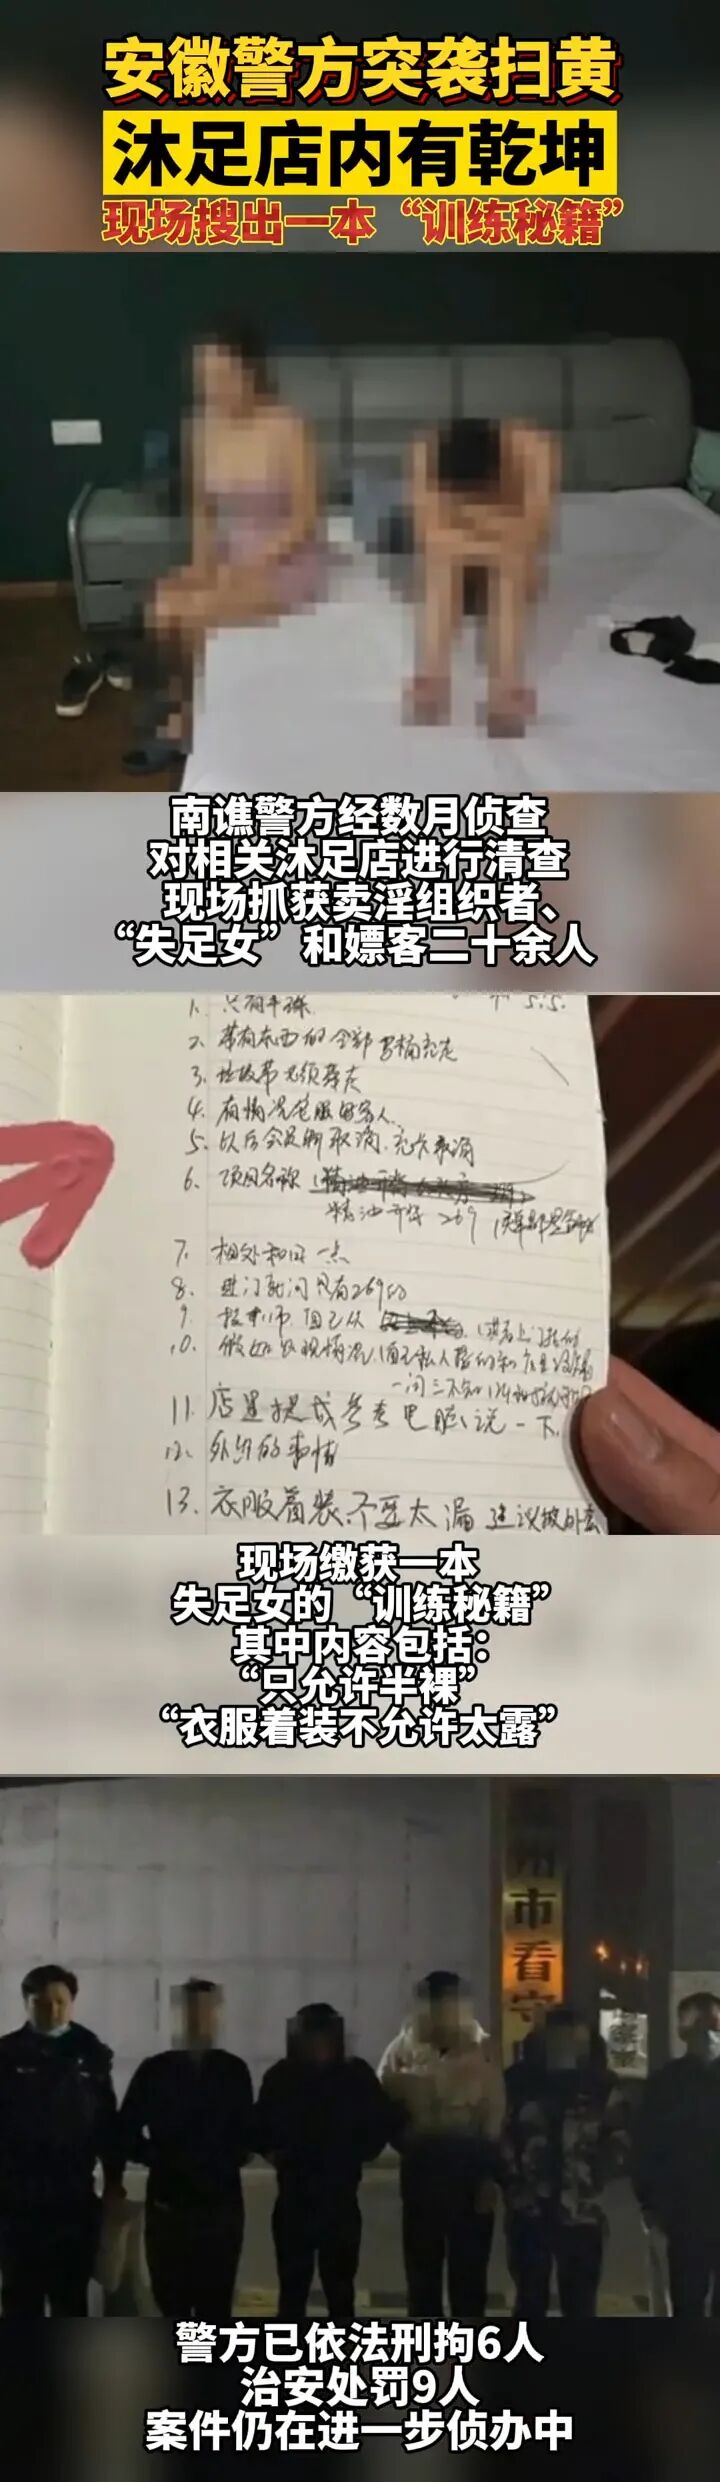 安徽警方突袭扫黄
沐足店内有乾坤
现场搜出一本“训练秘籍”
南谯警方经数月侦查
对相关沐足店进行清查
现场抓获卖淫组织者、
“失足女”和嫖客二十余人
1. 只有半裸
2. 带有东西的全部
3. 垃圾带
4. 有情况 客人
5. 以后会员 取消、充卡取消
6. 项目名称
精油开 269
7. 相处和 一点
8. 进门 问 只有269的
9. 技师 自己从
10. 假如 情况、
一问三不知
11. 店里提成参考电脑、说一下
12. 外 的事情
13. 衣服着装不要太漏 建议披外套
现场缴获一本
失足女的“训练秘籍”
其中内容包括：
“只允许半裸”
“衣服着装不允许太露”
州市看守
警方已依法刑拘6人
治安处罚9人
案件仍在进一步侦办中